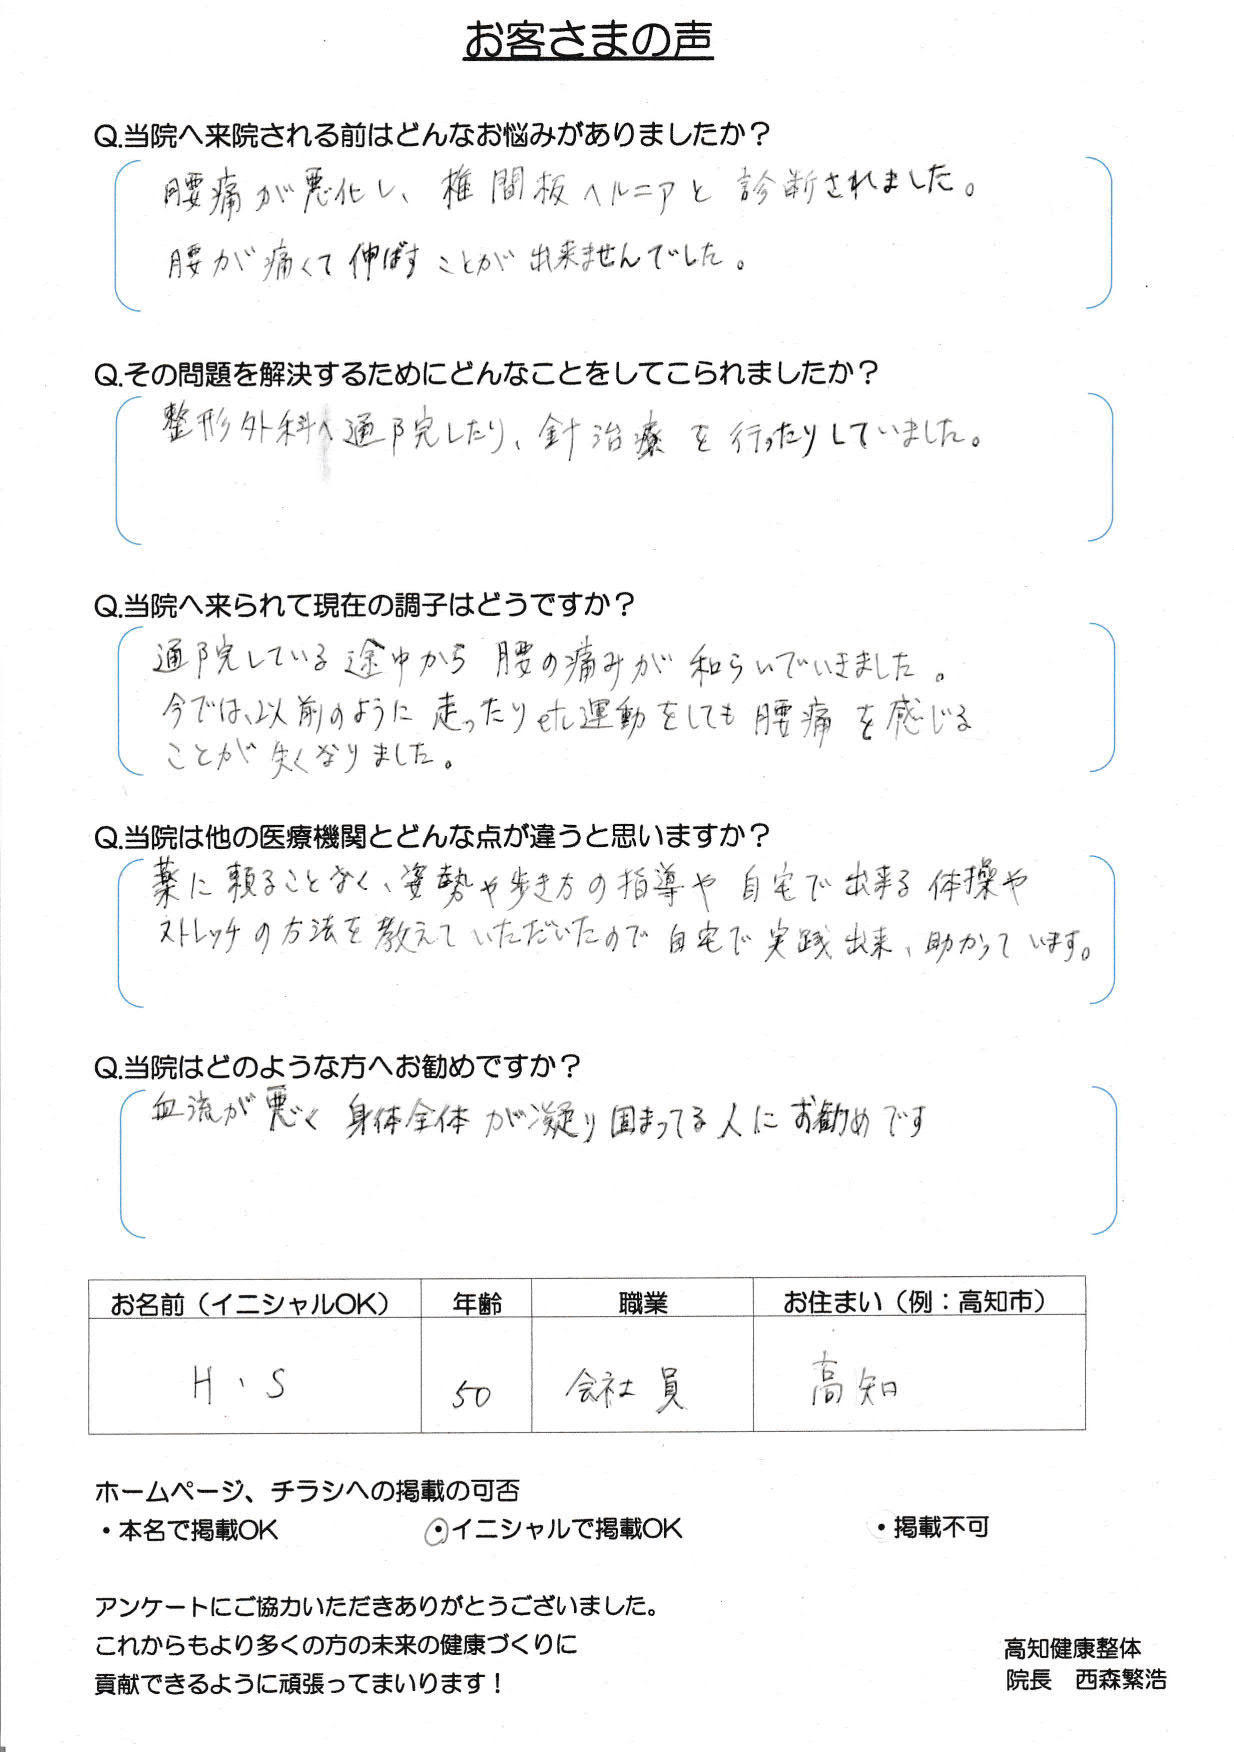 お客さまの声
Q.当院へ来院される前はどんなお悩みがありましたか？
腰痛が悪化し、椎間板ヘルニアと診断されました。
腰が痛くて伸ばすことが出来ませんでした。
Q.その問題を解決するためにどんなことをしてこられましたか？
整形外科へ通院したり、針治療を行ったりしていました。
Q.当院へ来られて現在の調子はどうですか？
通院している途中から腰の痛みが和らいでいきました。
今では、以前のように走ったりetc運動をしても腰痛を感じる
ことが失くなりました。
Q.当院は他の医療機関とどんな点が違うと思いますか？
薬に頼ることなく、姿勢や歩き方の指導や自宅で出来る体操や
ストレッチの方法を教えていただいたので自宅で実践出来、助かっています。
Q.当院はどのような方へお勧めですか？
血流が悪く身体全体が凝り固まってる人にお勧めです
お名前（イニシャルOK） 年齢 職業 お住まい（例：高知市）
H・S 50 会社員 高知
ホームページ、チラシへの掲載の可否
・本名で掲載OK ・イニシャルで掲載OK ・掲載不可
アンケートにご協力いただきありがとうございました。
これからもより多くの方の未来の健康づくりに
貢献できるように頑張ってまいります！
高知健康整体
院長 西森繁浩